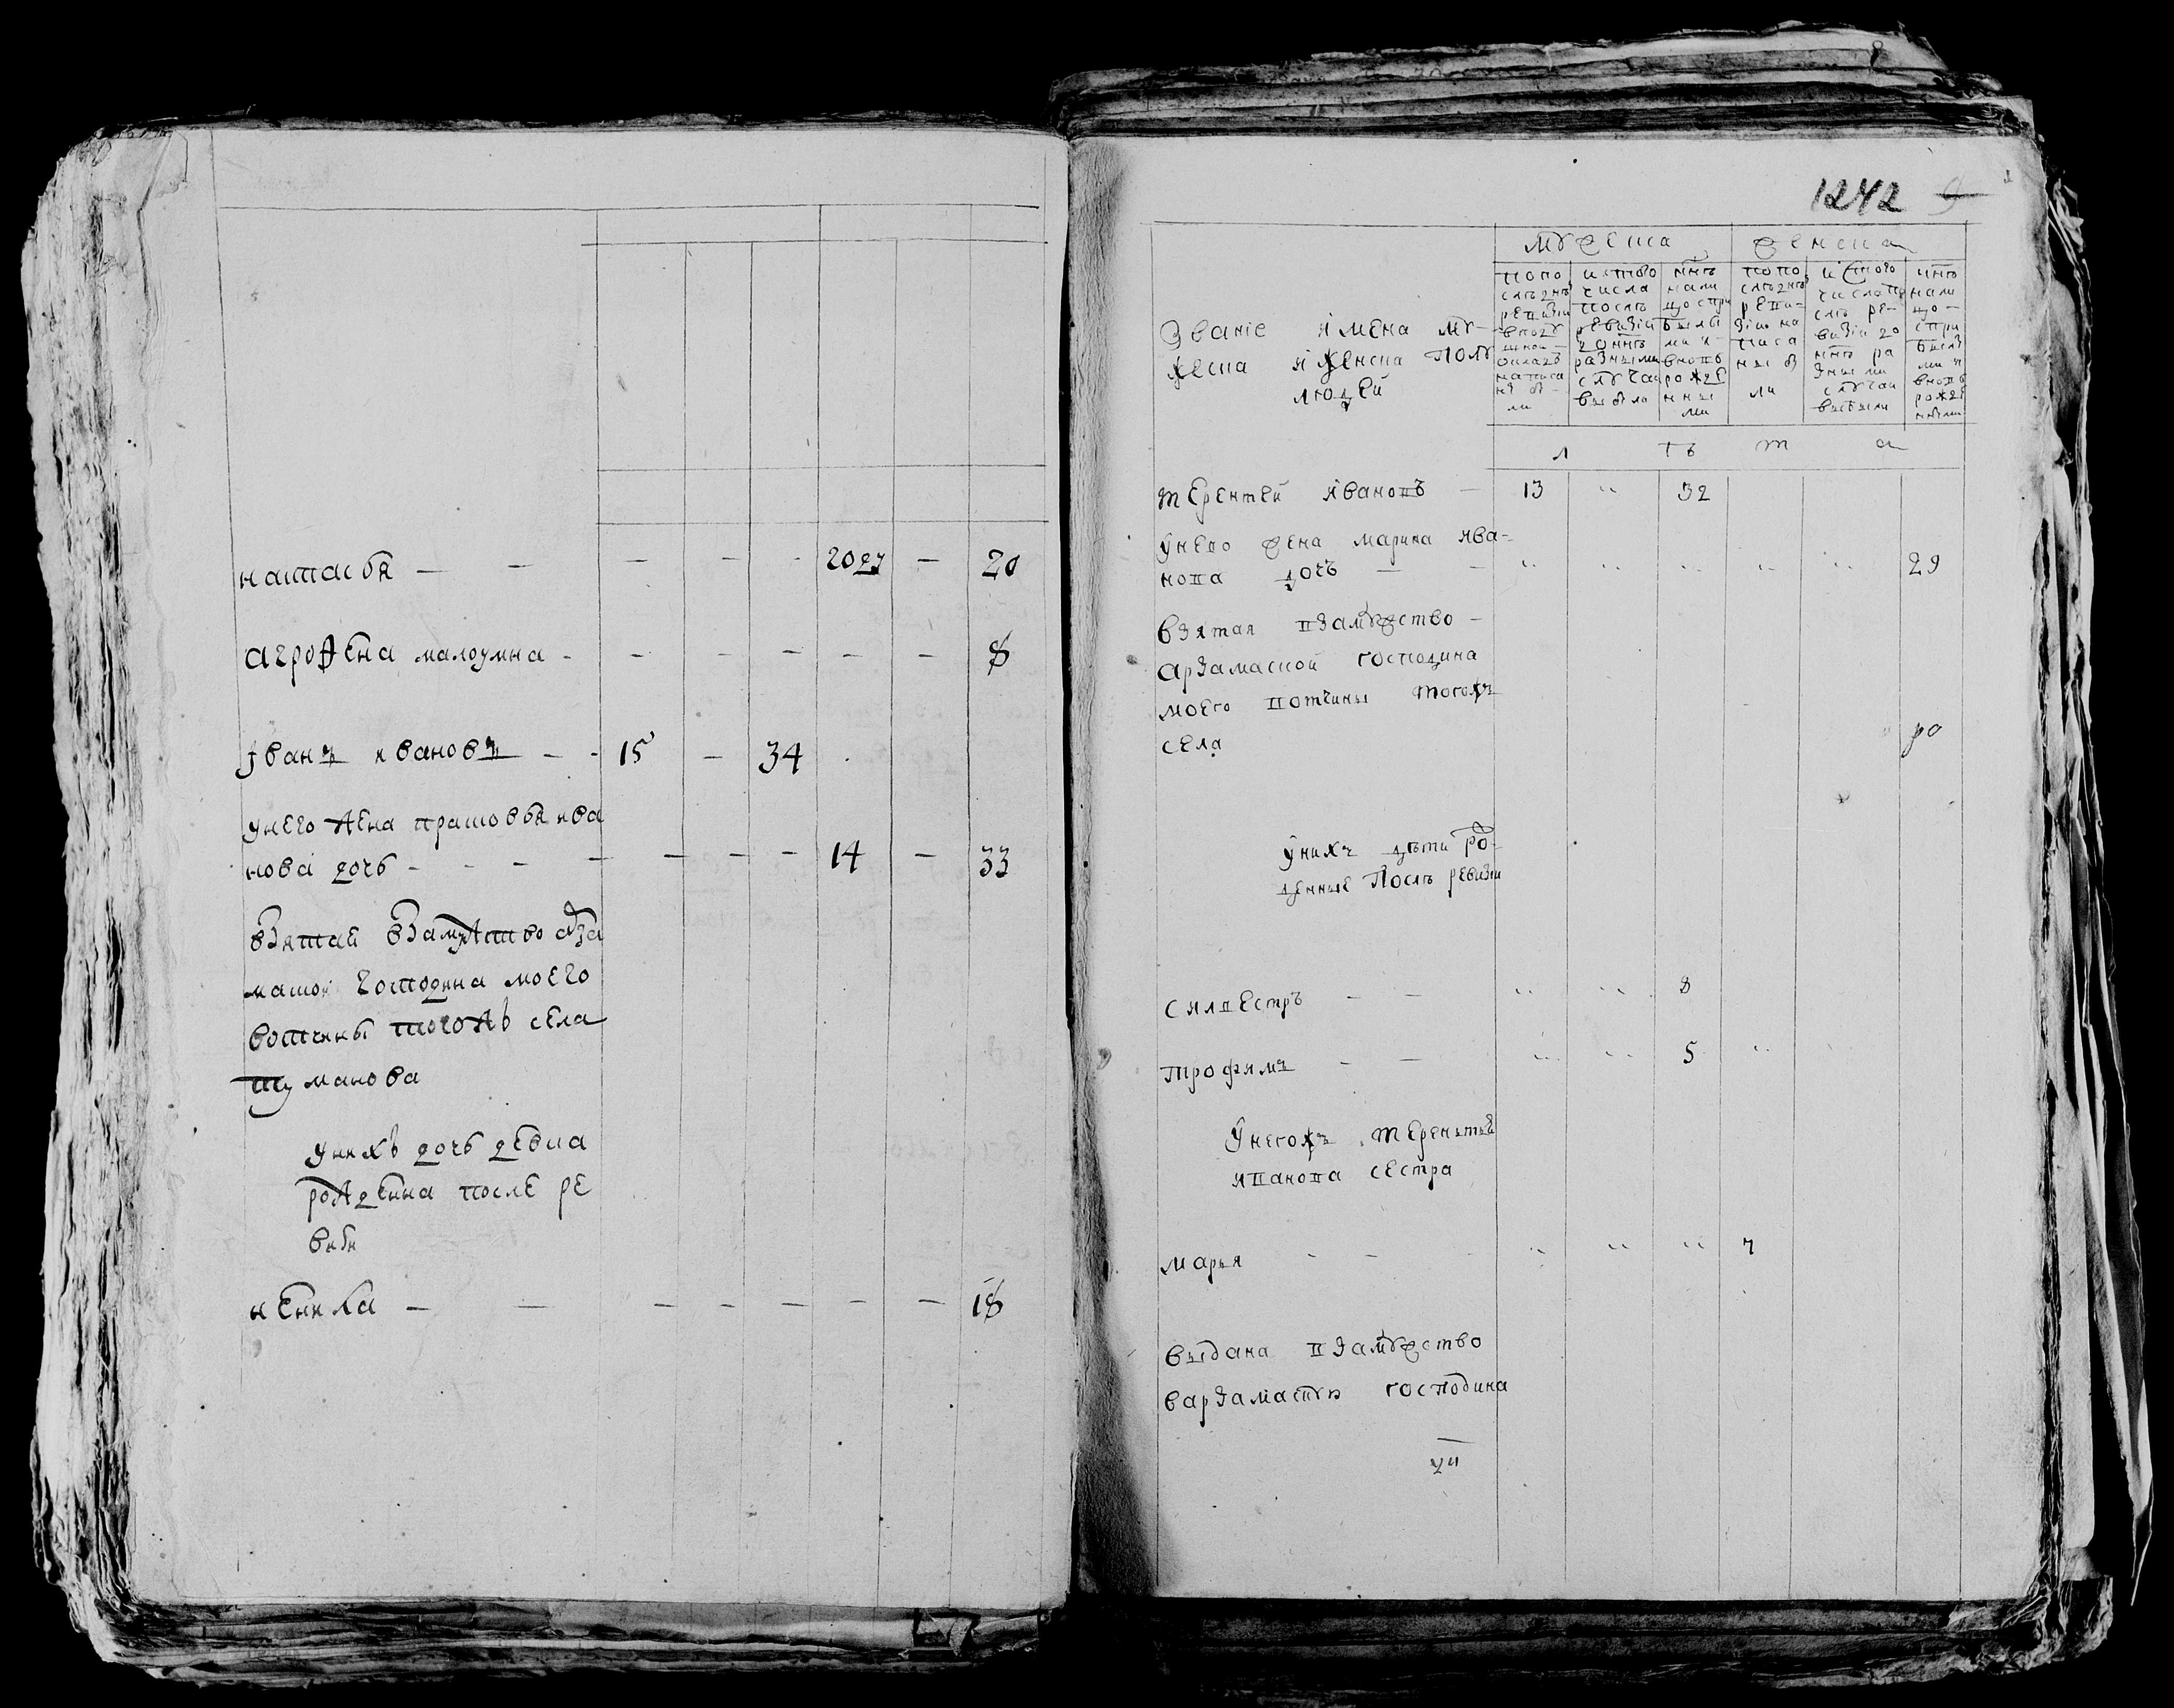 настасья — — — — - 20 дj — 20
агрофена малоумна - — — — — — 8
Iванъ ивановъ — - 15 — 34
унего жена прасковья ива
нова дочь - - - — — — — 14 — 33
взятая взамужство арза
маской господина моего
вотчины тогожъ села
шуманова
унихъ дочь девка
рожденна после ре
визи
ненила — — — — — — — 18
1242
мужеска женска
попо
слѣднѣ
ревизіи
вподу
шной
окладъ
написа
ны бы
ли
истого
числа
послѣ
ревизіи
до ннѣ
разными
случаи
выбыло
ннѣ
нали
цо спри
былы
ми и
вновь
рожде
нны
ми
попо
слѣднѣ
реви=
зіи на
писа
ны бы
ли
истого
числа по
слѣ ре-
визіи до
ннѣ ра
зными
случаи
выбыли
ннѣ
нали
цо —
спри
былы
ми и
вновь
рожде
нными
Званіе имена му-
жеска и женска полу
людей
л ѣ т а
терентей ивановъ — 13 " 32
унево жена марина ива-
нова дочь — - " " " " " 29
взятая взамужство -
арзамаской господина
моего вотчины тогожъ
села
унихъ дѣти ро-
жденные послѣ ревизіи
силвестръ — — " " 8
трофимъ — — " " 5 "
унегожъ терентья
иванова сестра
марья - - " " " 7
выдана взамужство
варзамаскую господина